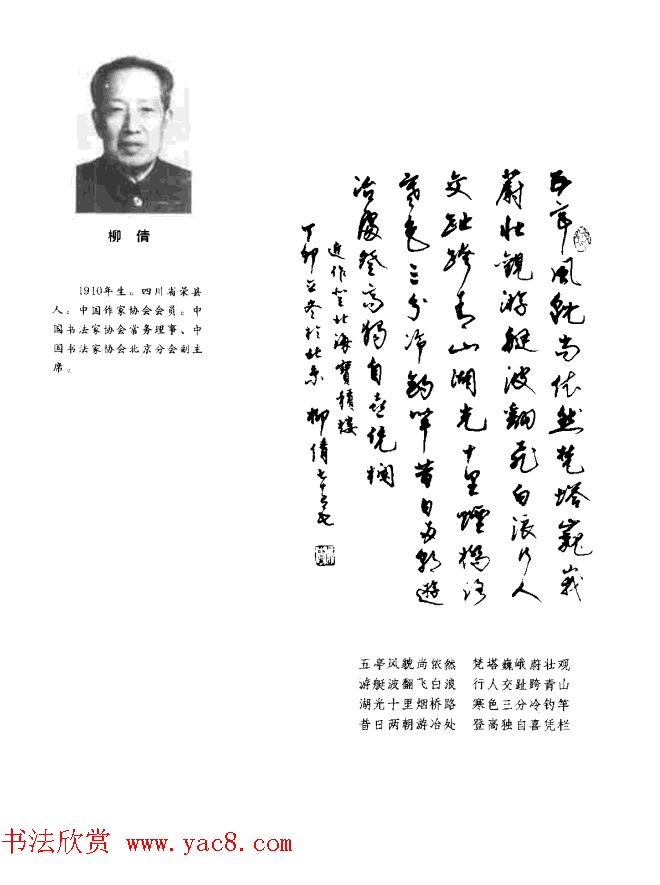 柳倩
1910年生。四川省荣县
人。中国作家协会会员。中
国书法家协会常务理事、中
国书法家协会北京分会副主
席。
五亭风貌尚依然梵塔巍峩
蔚壮觀游艇波翻飞白浪行人
交趾跨青山湖光十里煙橋路
寒色三分冷钓竿昔日两朝遊
冶處登高独自喜凭栏
近作登北海寶積楼
丁卯立冬於北京 柳倩
五亭风貌尚依然 梵塔巍峨蔚壮观
游艇波翻飞白浪 行人交趾跨青山
湖光十里烟桥路 寒色三分冷钓竿
昔日两朝游冶处 登高独自喜凭栏
书法欣赏 www.yac8.com